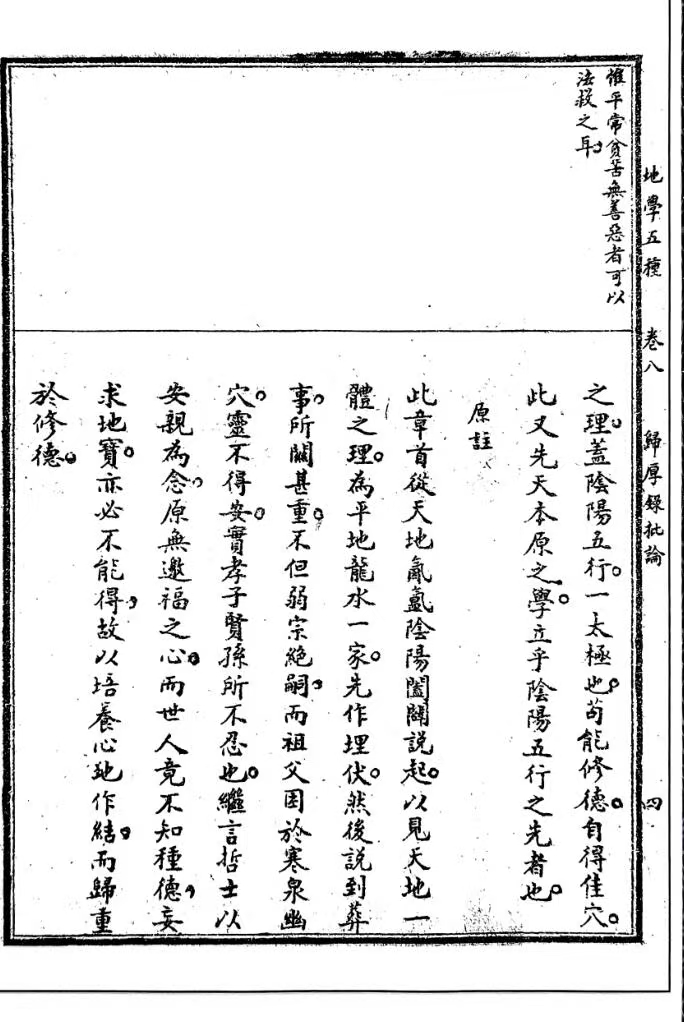 地學五種　卷八　歸厚錄批論　四
惟平常貧苦無善惡者可以
法救之耳
之理蓋陰陽五行。一太極也苟能修德自得佳穴。
此又先天本原之學。立乎陰陽五行之先者也。
原註
此章首從天地氤氳陰陽闔闢說起。以見天地一
體之理。為平地龍水一家。先作埋伏。然後說到葬
事。所關甚重。不但弱宗絕嗣。而祖父困於寒泉幽
穴。靈不得安。實孝子賢孫所不忍也。繼言哲士以
安親為念。原無邀福之心。而世人竟不知種德。妄
求地寶。亦必不能得。故以培養心地作結。而歸重
於修德。